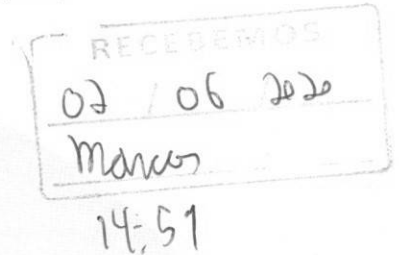 RECEBEMOS
02 / 06 2020
Marcos
14:51